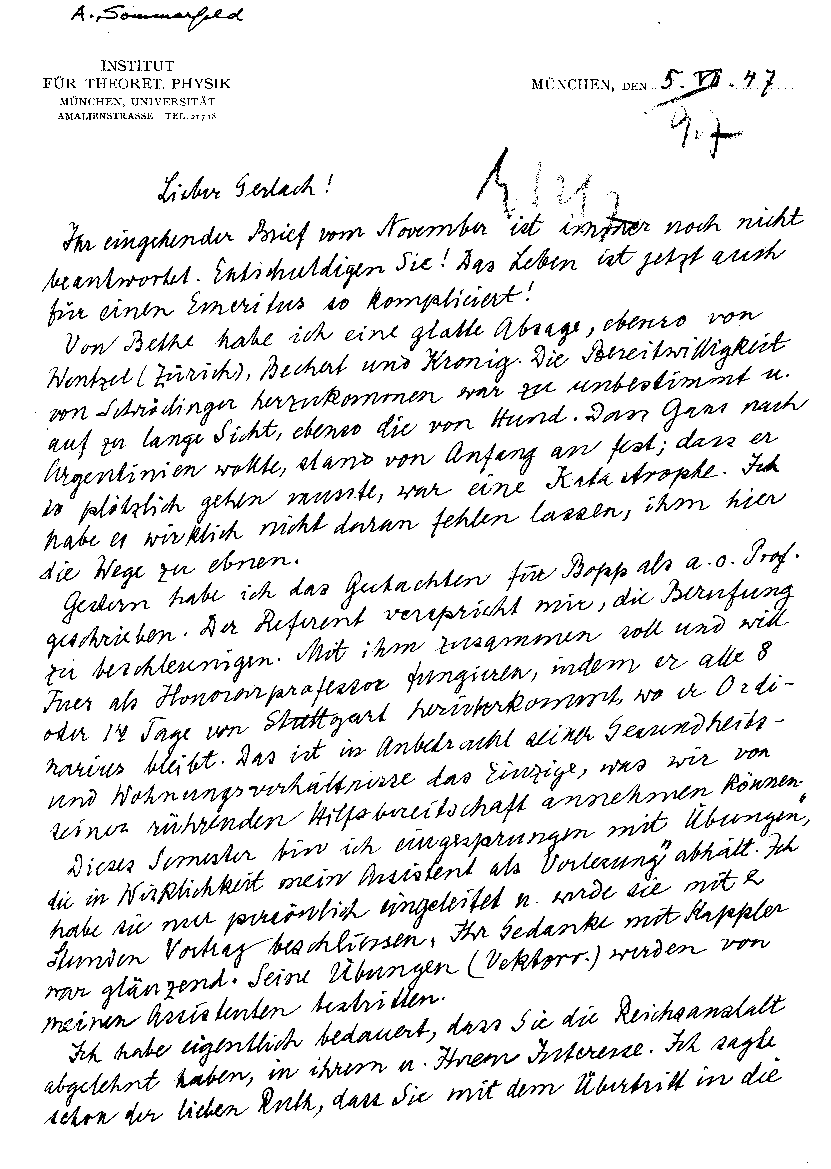 A. Sommerfeld
INSTITUT
FÜR THEORET. PHYSIK
MÜNCHEN, UNIVERSITÄT
AMALIENSTRASSE TEL. 21718
MÜNCHEN, DEN 5. VII. 47
9.7
Lieber Gerlach!
Ihr eingehender Brief vom November ist immer noch nicht
beantwortet. Entschuldigen Sie! Das Leben ist jetzt auch
für einen Emeritus so kompliciert!
Von Bethe habe ich eine glatte Absage, ebenso von
Wentzel (Zürich), Bechert und Kronig. Die Bereitwilligkeit
von Schrödinger herzukommen war zu unbestimmt u.
auf zu lange Sicht, ebenso die von Hund. Dass Gans nach
Argentinien wollte, stand von Anfang an fest; dass er
so plötzlich gehen musste, war eine Katastrophe. Ich
habe es wirklich nicht daran fehlen lassen, ihm hier
die Wege zu ebnen.
Gestern habe ich das Gutachten für Bopp als a.o. Prof.
geschrieben. Der Referent verspricht mir, die Berufung
zu beschleunigen. Mit ihm zusammen soll und will
Fues als Honorarprofessor fungieren, indem er alle 8
oder 14 Tage von Stuttgart herüberkommt, wo er Ordi-
narius bleibt. Das ist in Anbetracht seiner Gesundheits-
und Wohnungsverhältnisse das Einzige, was wir von
seiner rührenden Hilfsbereitschaft annehmen können.
Dieses Semester bin ich eingesprungen mit Übungen,
die in Wirklichkeit mein Assistent als „Vorlesung" abhält. Ich
habe sie nur persönlich eingeleitet u. werde sie mit 2
Stunden Vortrag beschliessen. Ihr Gedanke mit Kappler
war glänzend. Seine Übungen (Vektorr.) werden von
meinen Assistenten bestritten.
Ich habe eigentlich bedauert, dass Sie die Reichsanstalt
abgelehnt haben, in ihrem u. Ihrem Interesse. Ich sagte
schon der lieben Ruth, dass Sie mit dem Übertritt in die